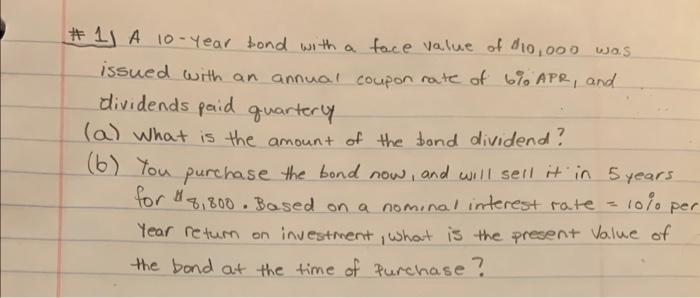 # 1) A 10-year bond with a face value of $10,000 was
issued with an annual coupon rate of 6% APR, and
dividends paid quarterly
(a) What is the amount of the bond dividend?
(b) You purchase the bond now, and will sell it in 5 years
for $8,800. Based on a nominal interest rate = 10% per
Year return on investment, what is the present Value of
the bond at the time of purchase?